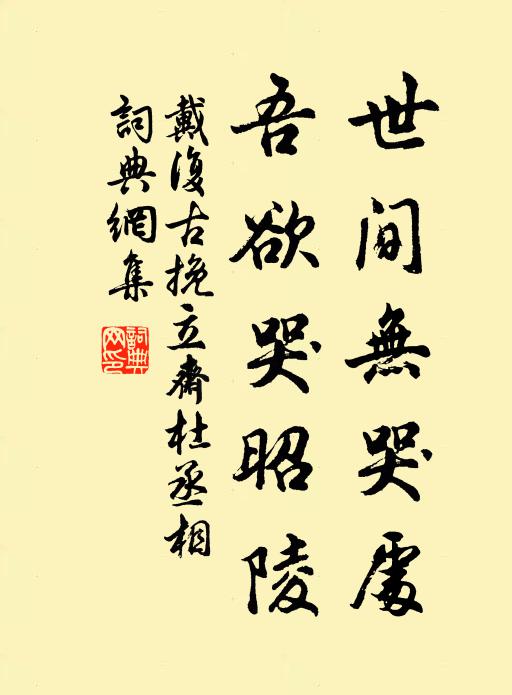 世间無哭處
吾欲哭昭陵
戴復古挽立齋杜丞相
詞典網集
詞典網印